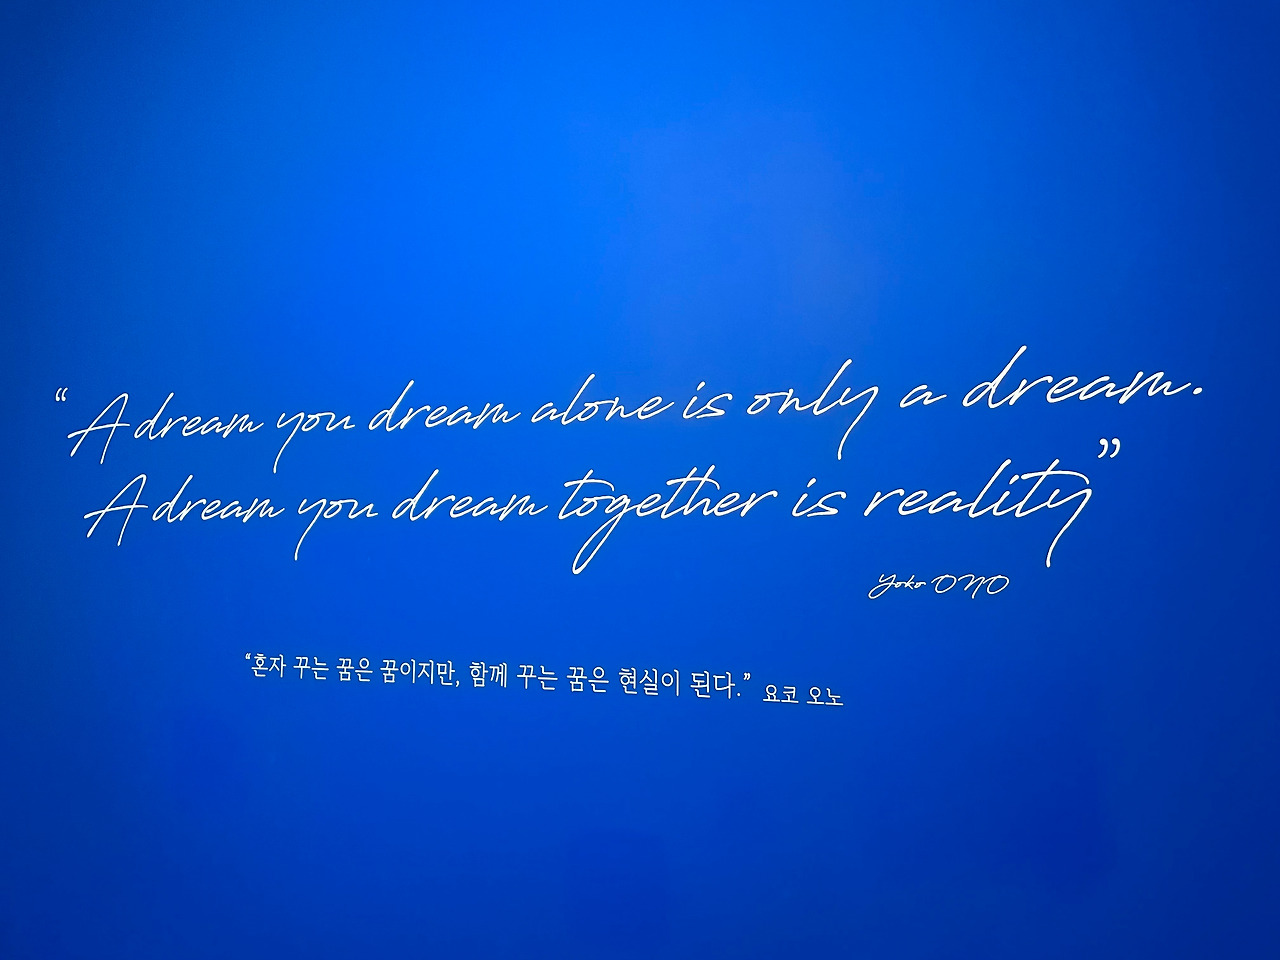 “A dream you dream alone is only a dream.
A dream you dream together is reality”
Yoko ONO
“혼자 꾸는 꿈은 꿈이지만, 함께 꾸는 꿈은 현실이 된다.” 요코 오노